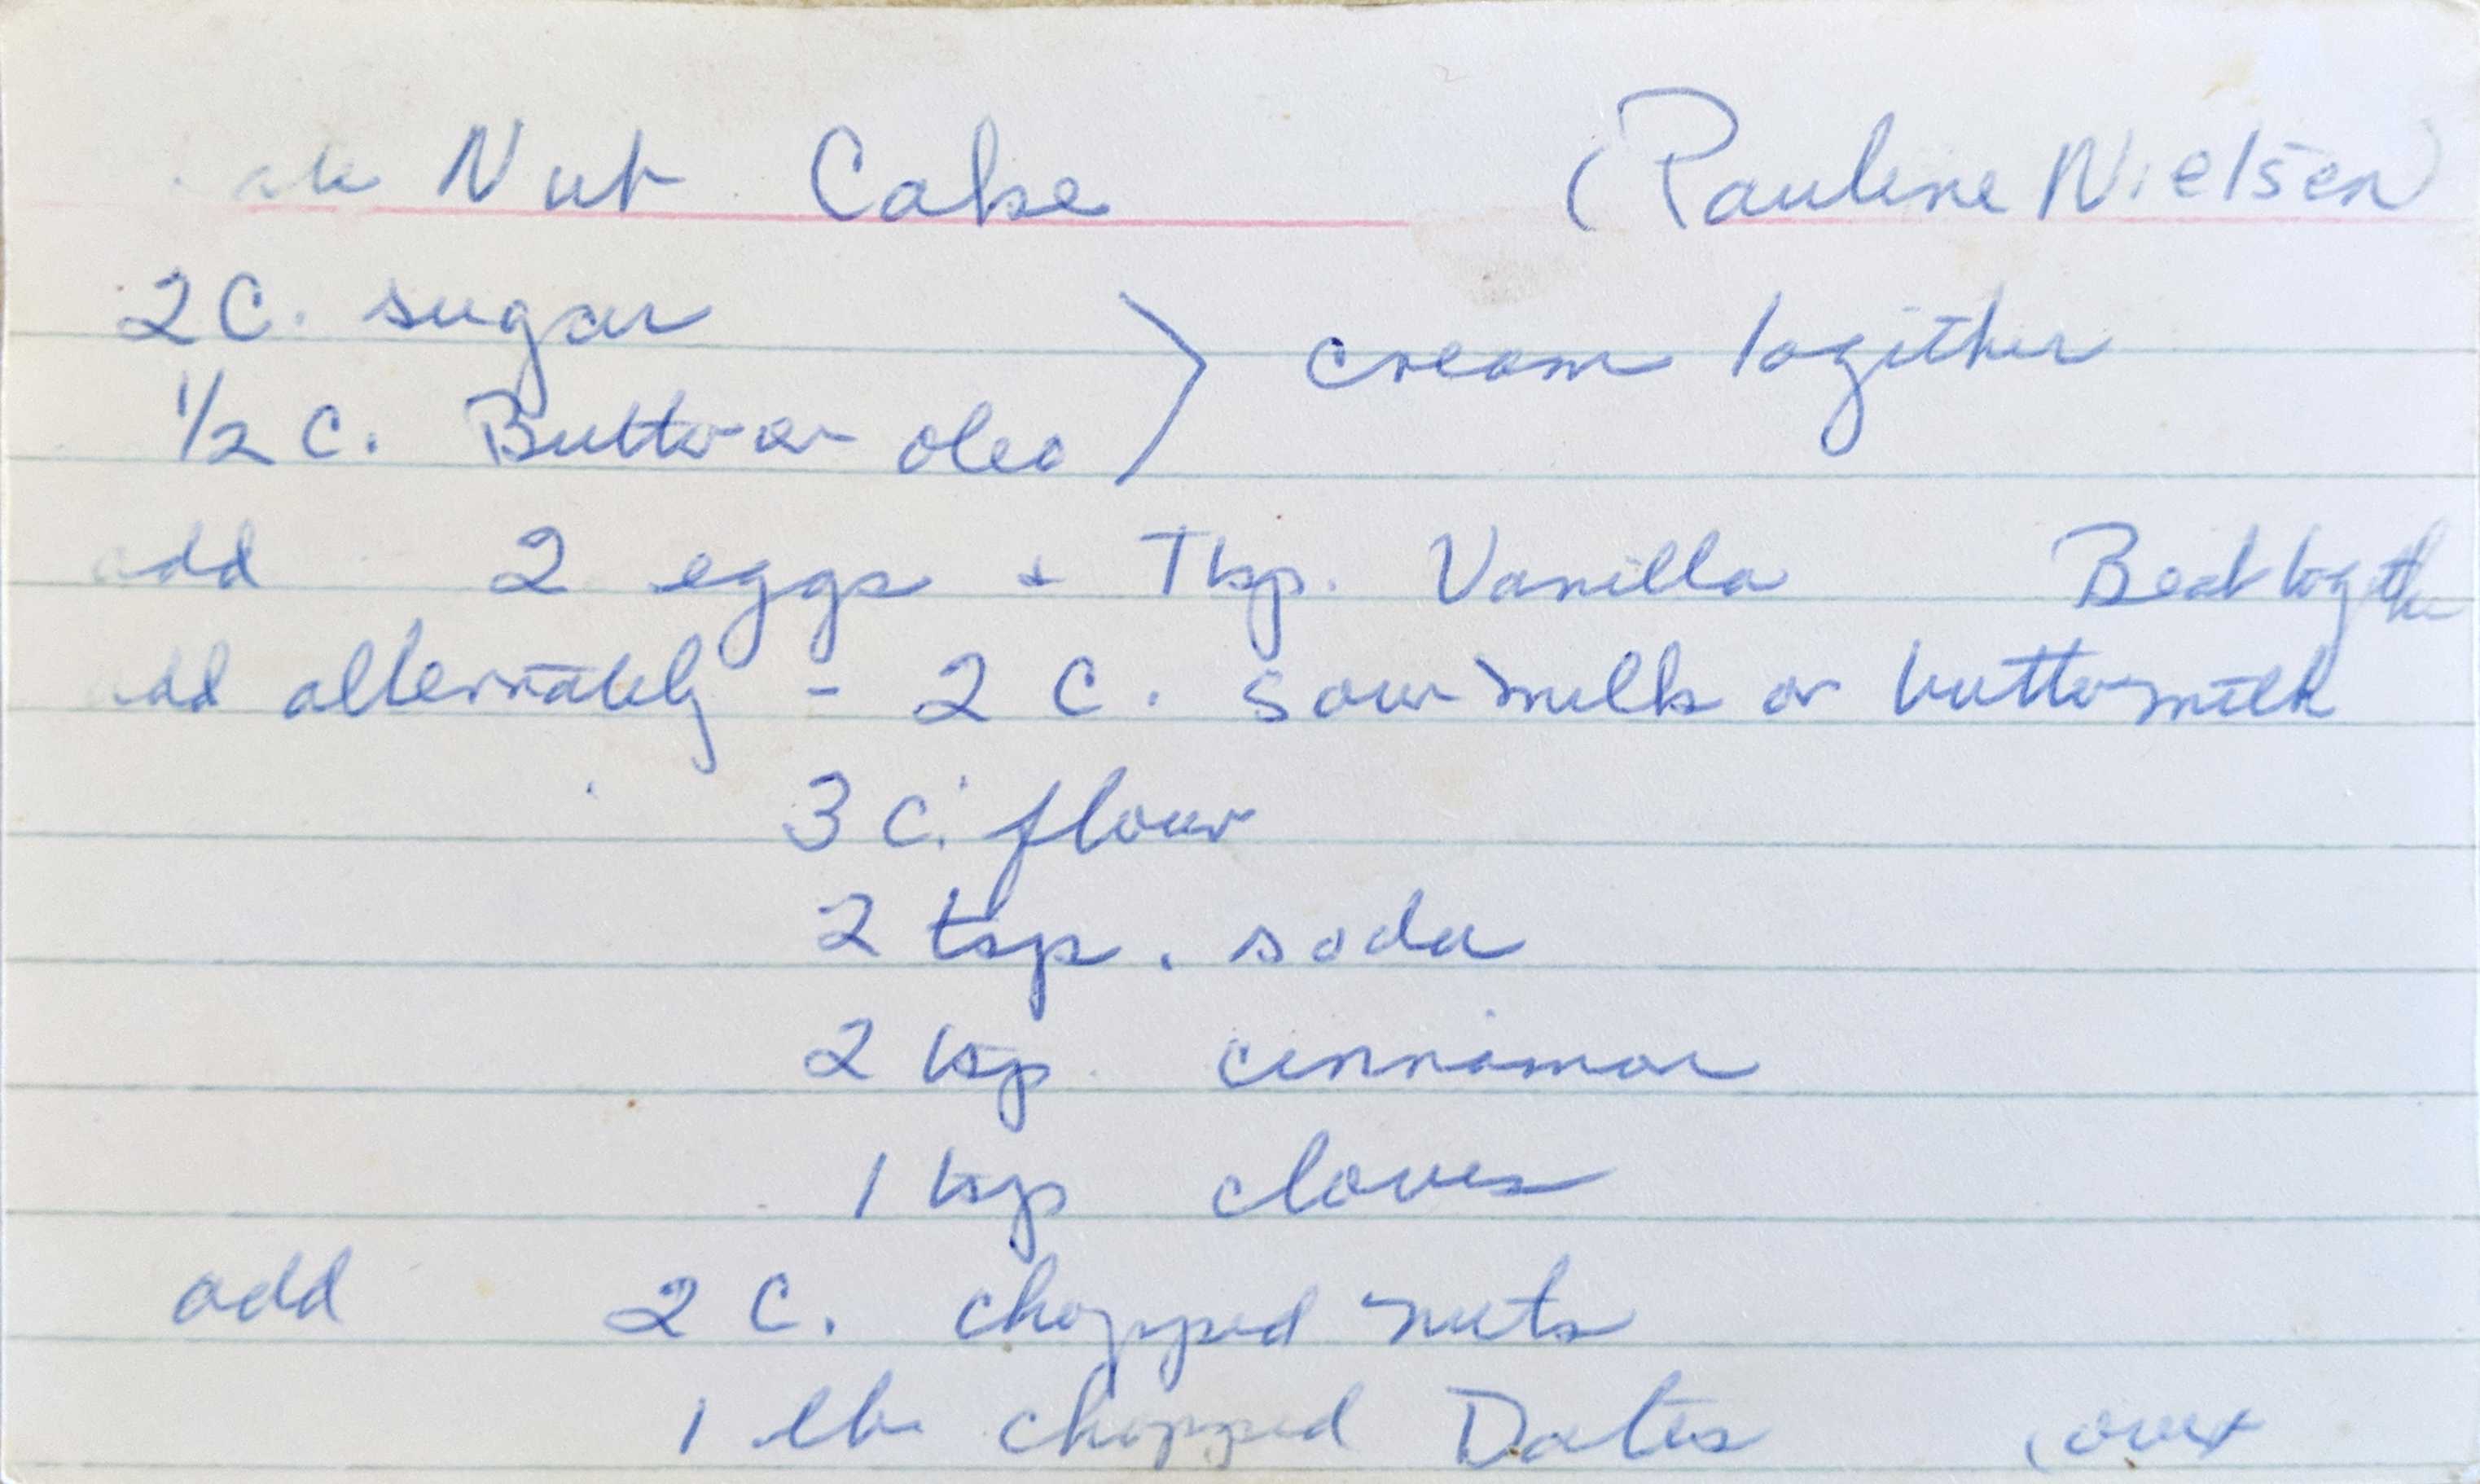 Nut Cake (Pauline Nielsen)
2 C. sugar
1/2 C. Butter or oleo > cream together
add 2 eggs + Tbsp. Vanilla Beat together
add alternately - 2 C. sour milk or buttermilk
3 C. flour
2 tsp. soda
2 tsp cinnamon
1 tsp cloves
add 2 C. chopped nuts
1 lb chopped Dates (over